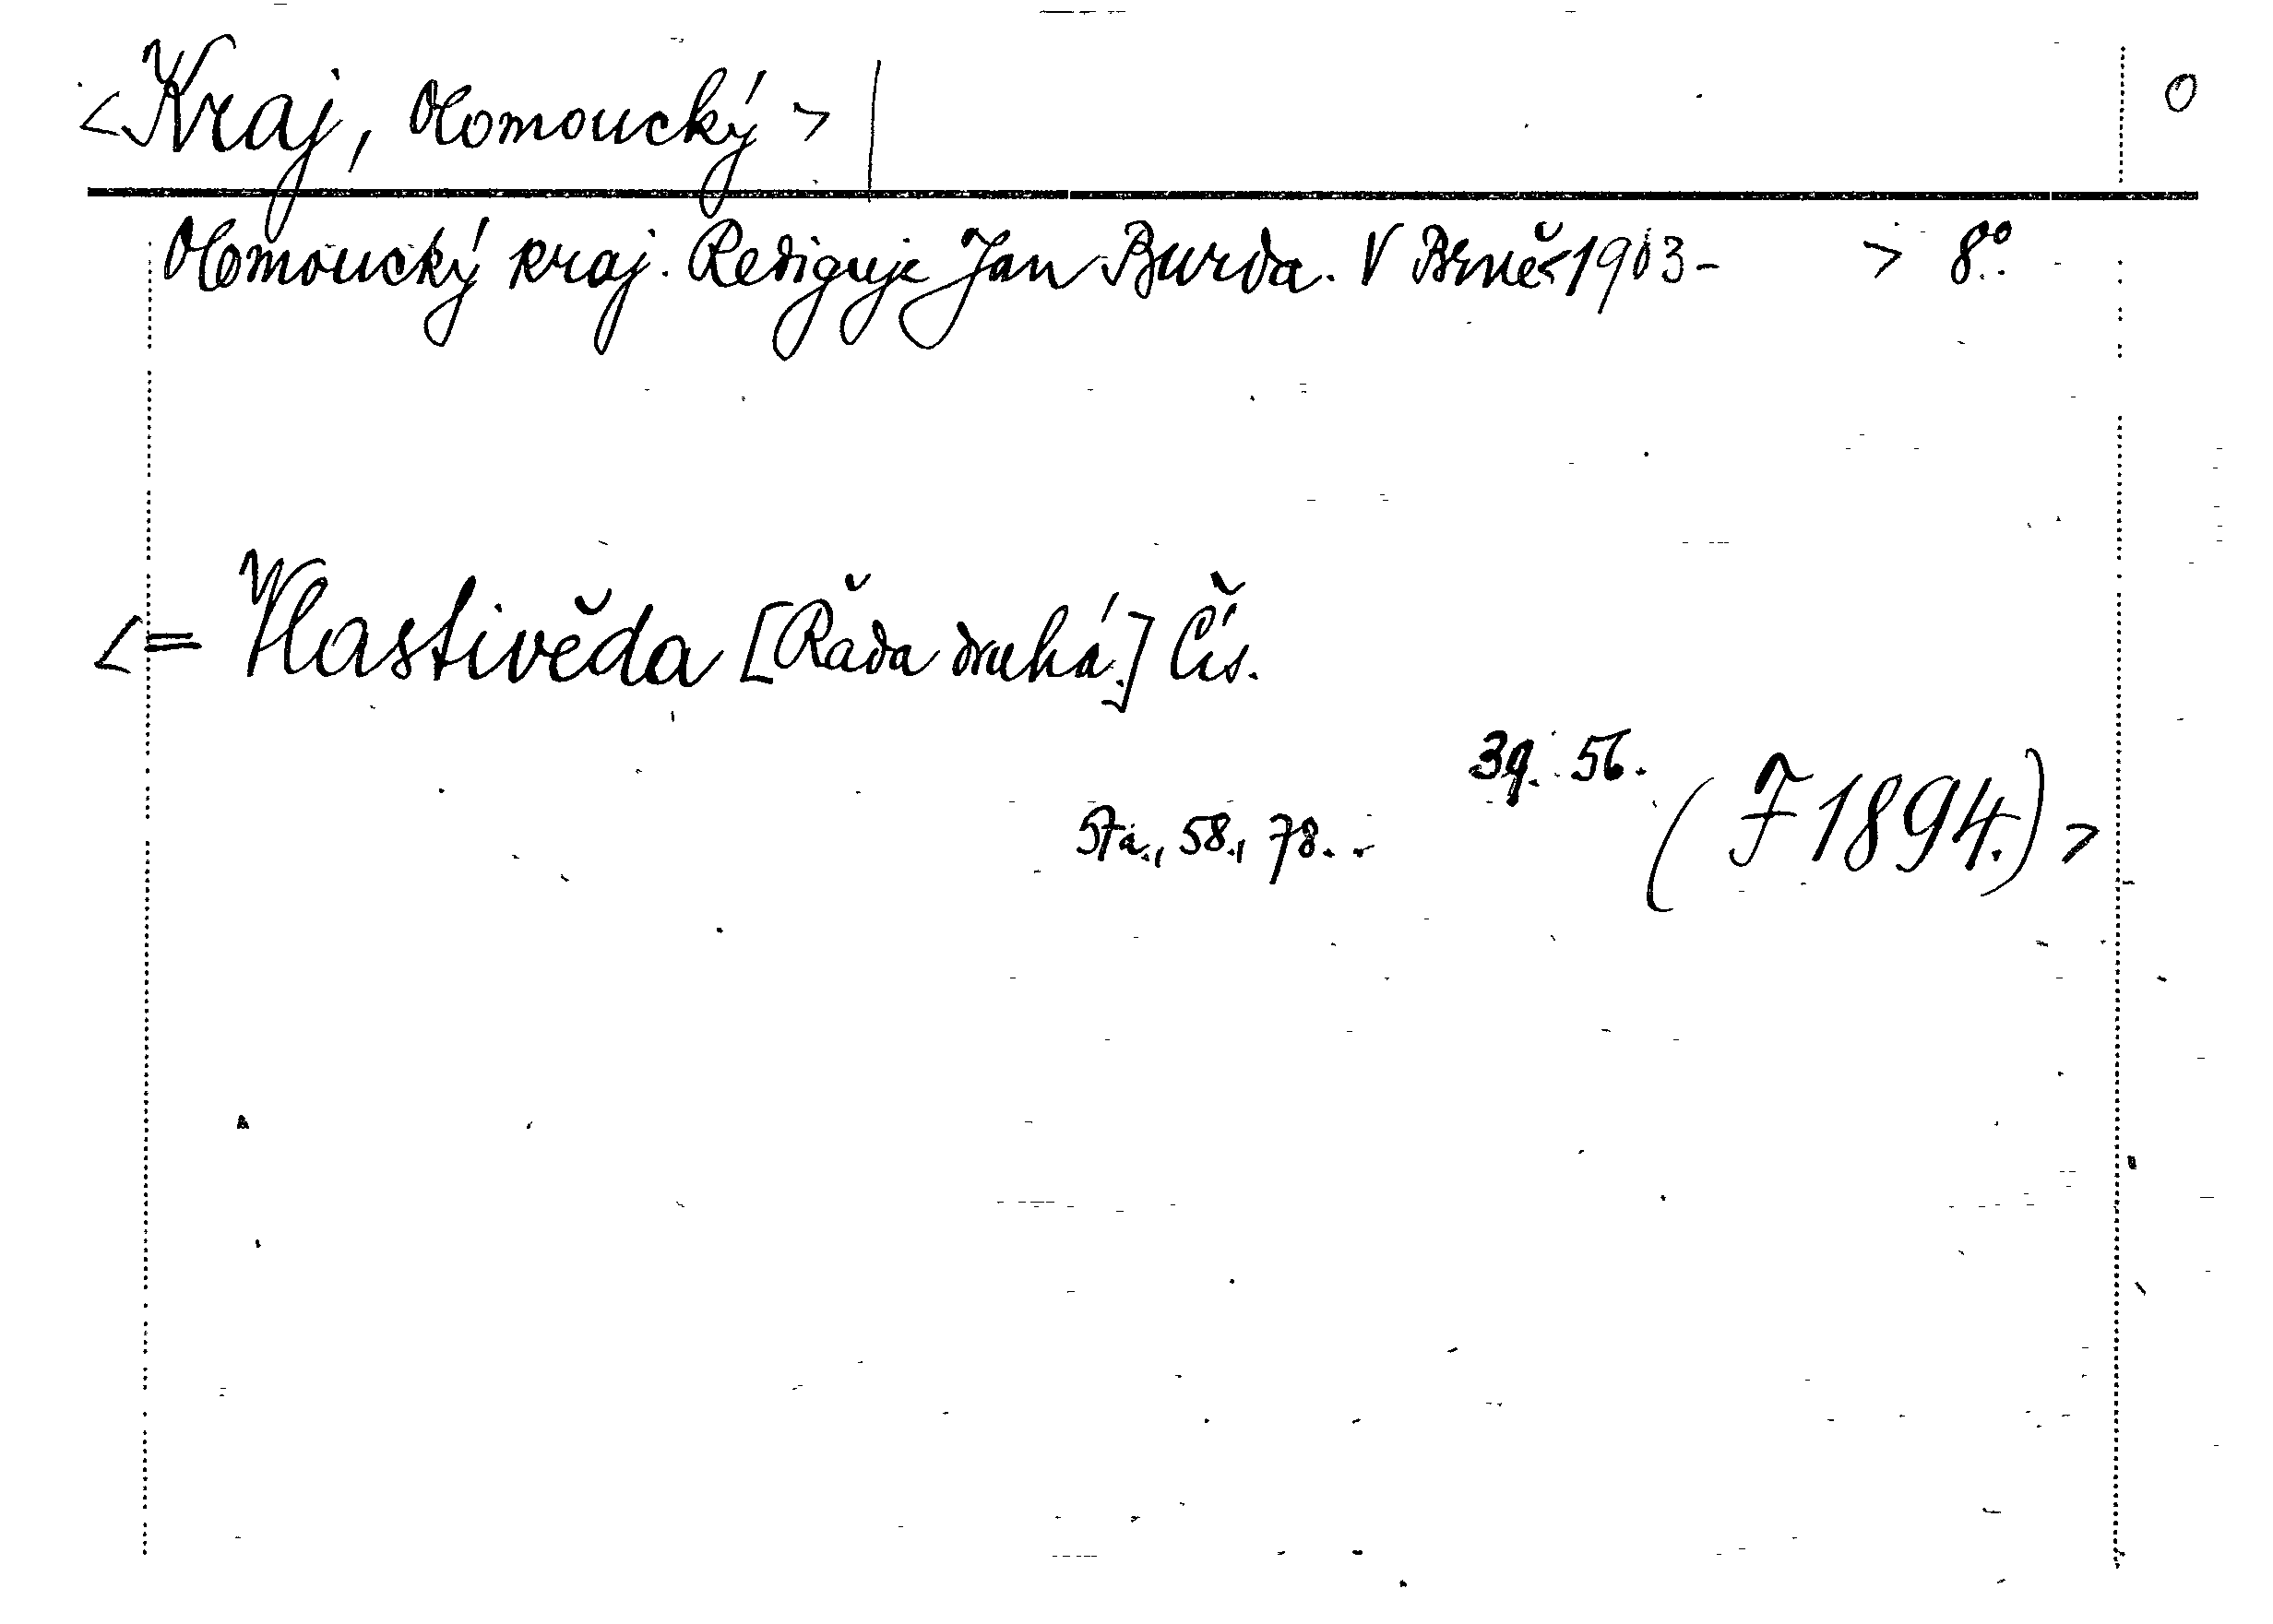 <Kraj, Olomoucký> | O
Olomoucký kraj. Rediguje Jan Burda. V Brně <1903- > 8°.
<= Vlastivěda [Řada druhá.] Čís.
39. 56.
57a., 58., 78. -
(F 1894.) >